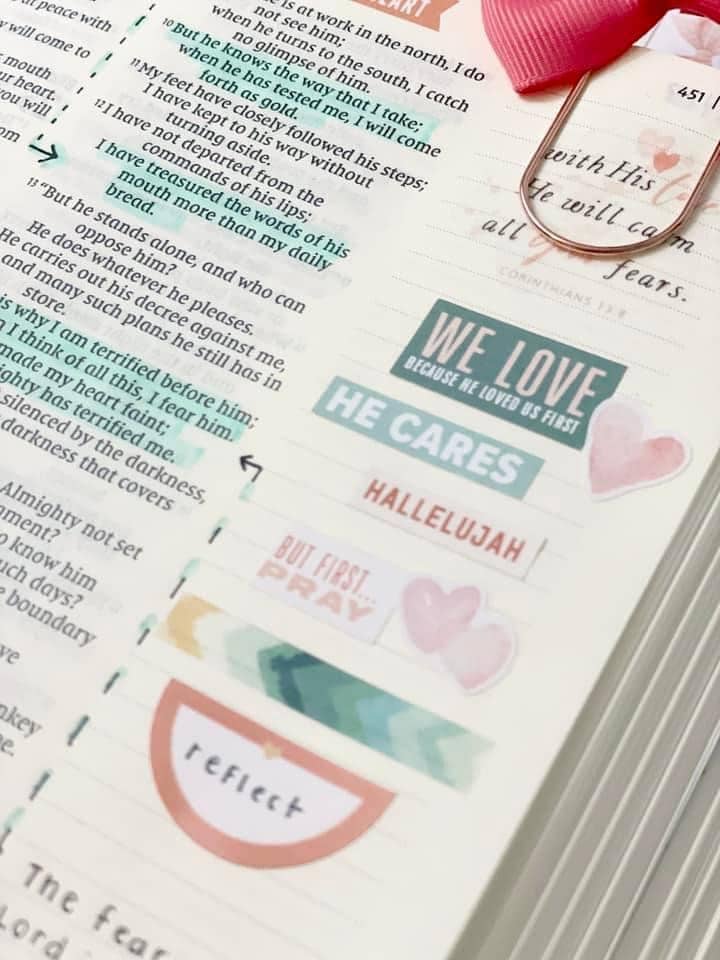 HEART
peace with
y will come to
mouth
ur heart.
you will
om
he is at work in the north, I do
not see him;
when he turns to the south, I catch
no glimpse of him.
10 But he knows the way that I take;
when he has tested me, I will come
forth as gold.
11 My feet have closely followed his steps;
I have kept to his way without
turning aside.
12 I have not departed from the
commands of his lips;
I have treasured the words of his
mouth more than my daily
bread.
13 "But he stands alone, and who can
oppose him?
He does whatever he pleases.
He carries out his decree against me,
and many such plans he still has in
store.
is why I am terrified before him;
I think of all this, I fear him.
made my heart faint;
ighty has terrified me.
silenced by the darkness,
darkness that covers
Almighty not set
ment?
o know him
uch days?
e boundary
ve
nkey
e.
451
with His love
He will calm
all your fears.
CORINTHIANS 13:8
WE LOVE
BECAUSE HE LOVED US FIRST
HE CARES
HALLELUJAH
BUT FIRST...
PRAY
reflect
The fear
Lord